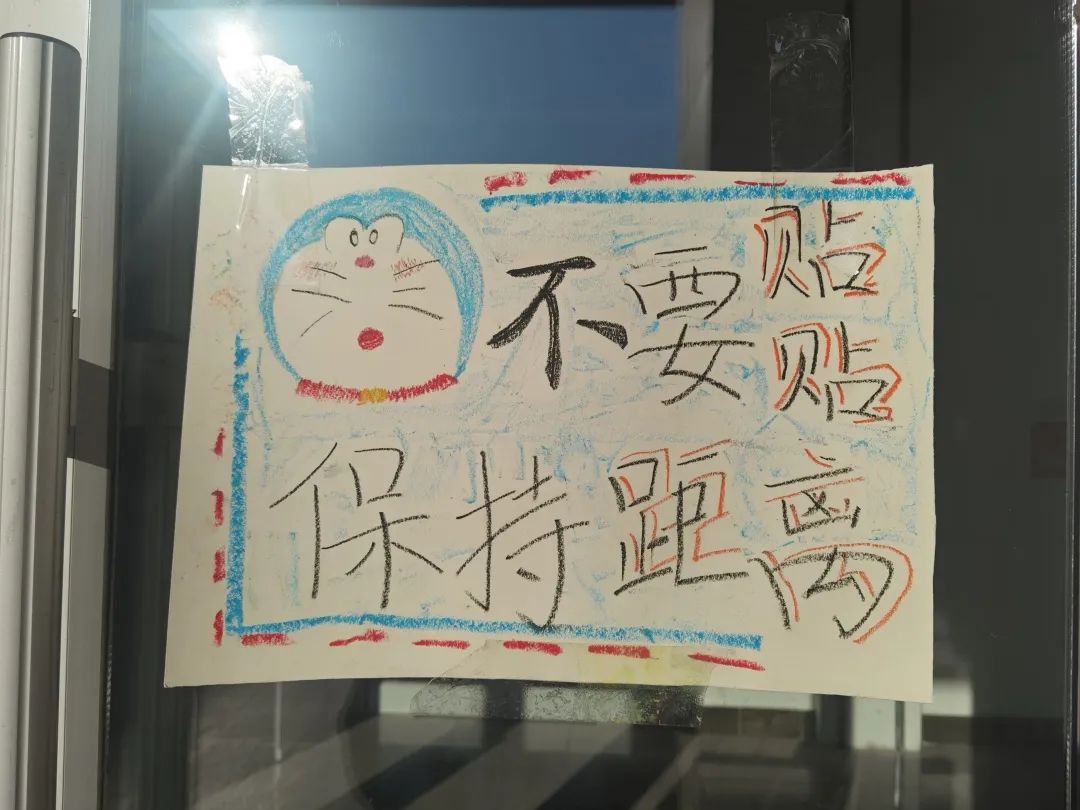 不要贴贴
保持距离